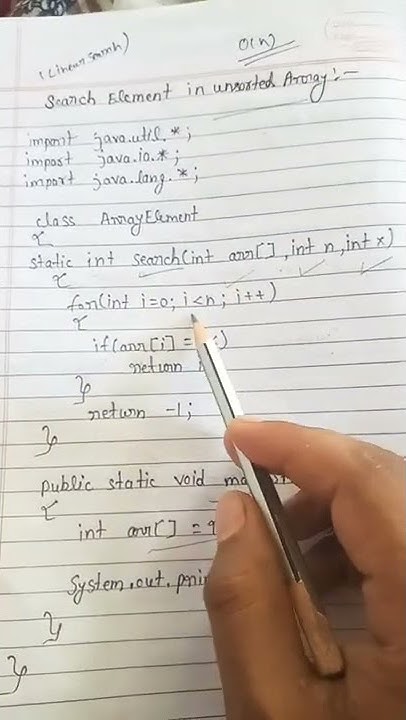 (Linear Search)
O(n)
Search Element in unsorted Array:-
import java.util.*;
import java.io.*;
import java.lang.*;
class ArrayElement
{
static int search(int arr[], int n, int x)
{
for(int i=0; i<n; i++)
{
if(arr[i] =
return
}
return -1;
}
public static void
{
int arr[] =
System.out.
}
}